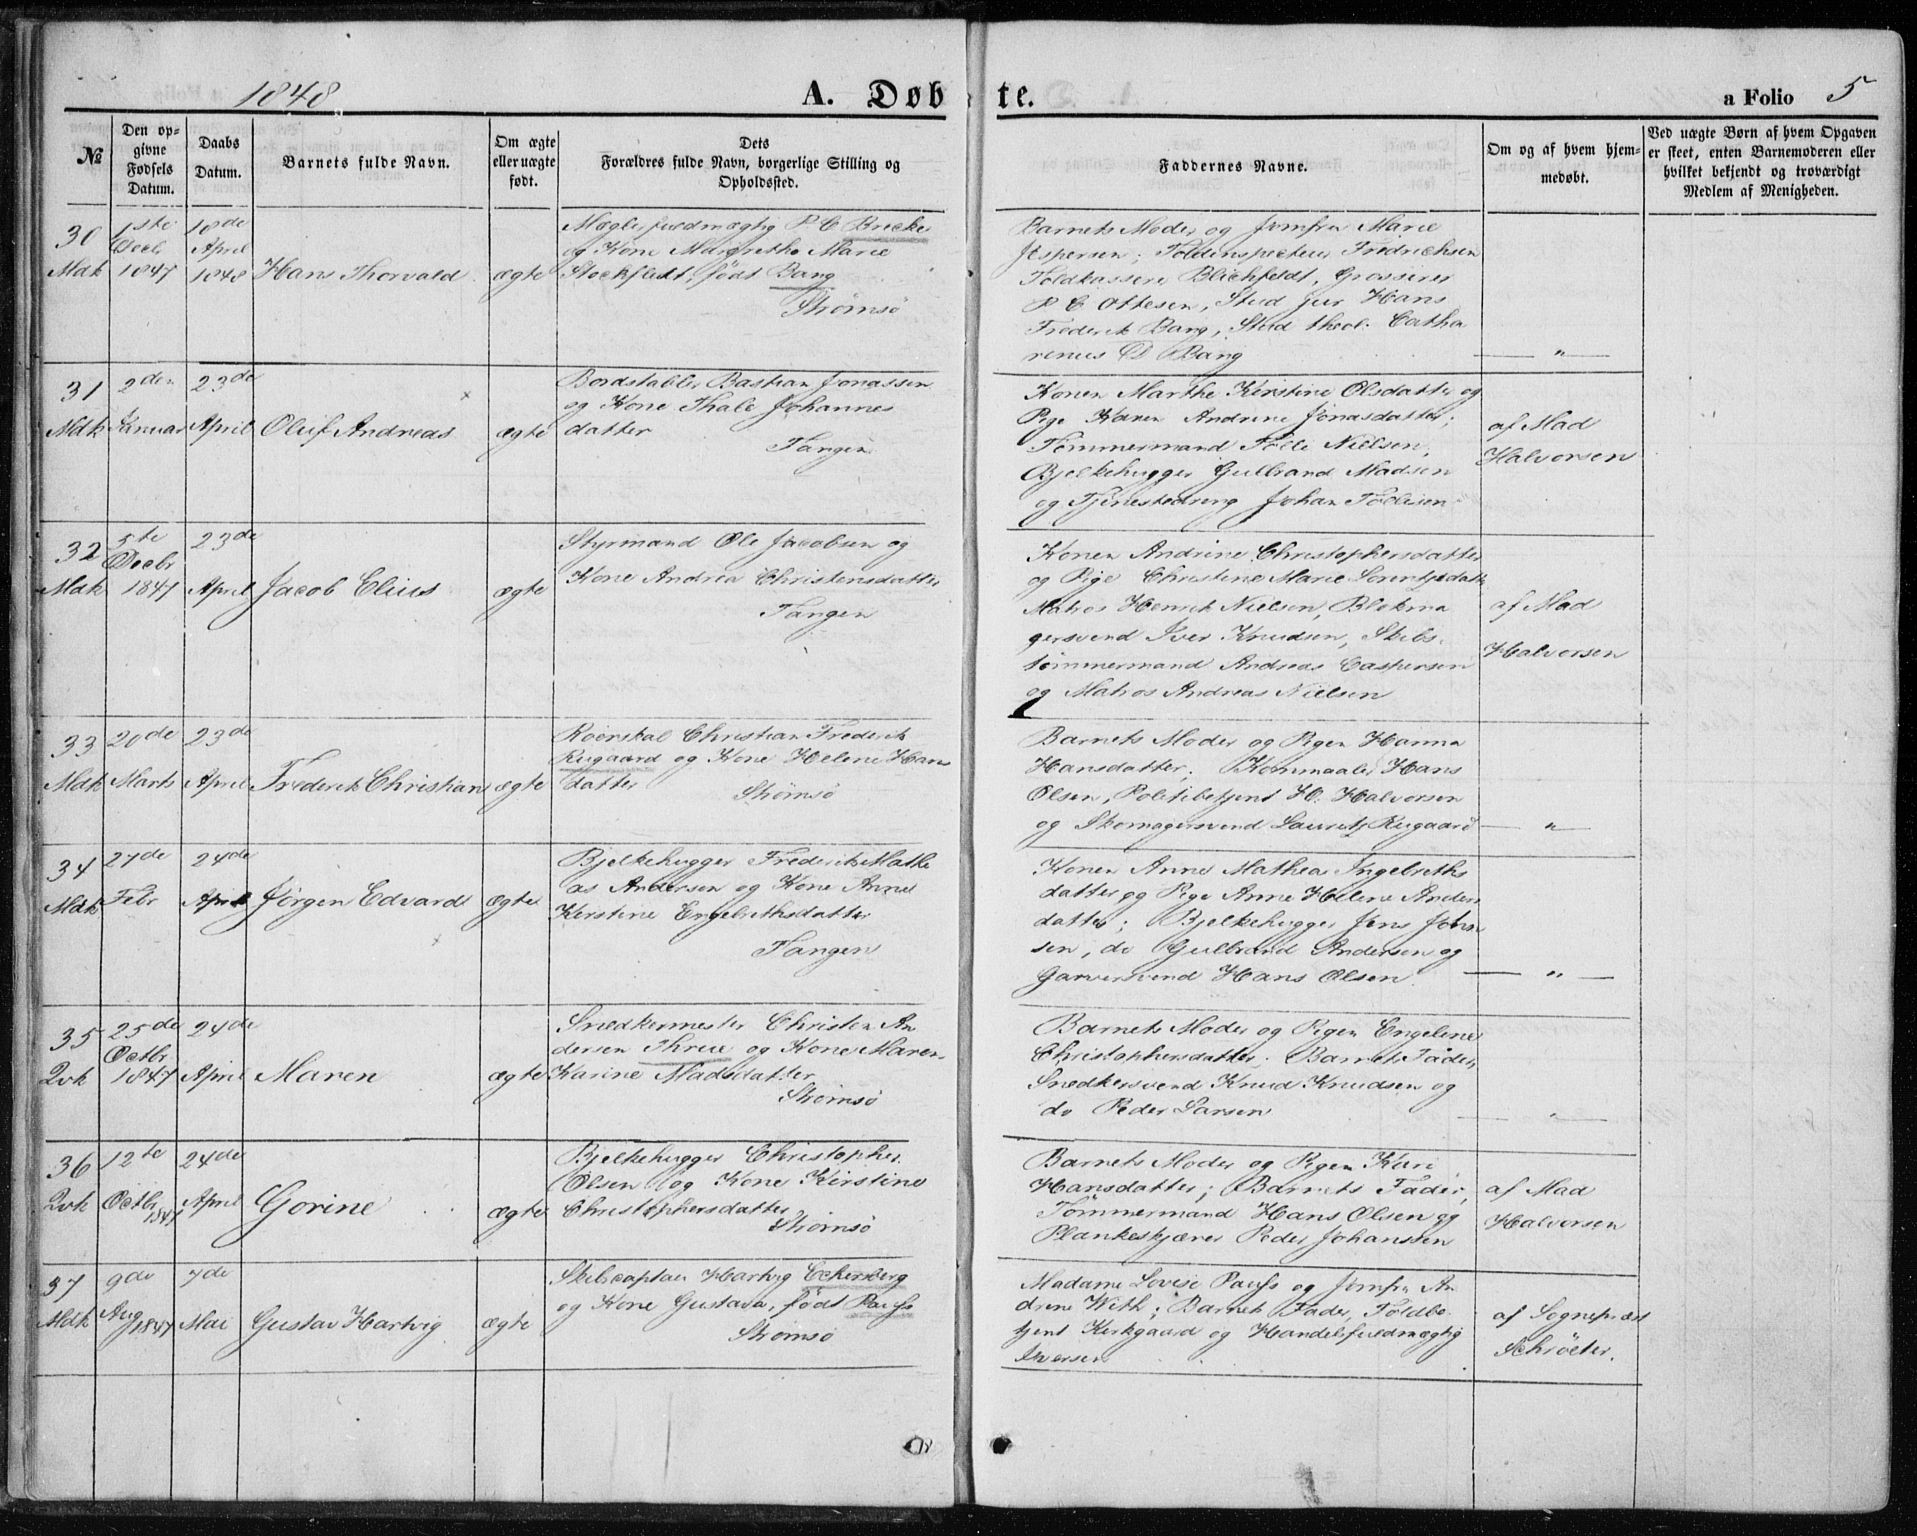 1848
A. Døbte.
a Folio 5
№
Den opgivne Fødsels Datum.
Daabs Datum.
Barnets fulde Navn.
Om ægte eller uægte født.
Dets Forældres fulde Navn, borgerlige Stilling og Opholdssted.
Faddernes Navne.
Om og af hvem hjemmedøbt.
Ved uægte Børn af hvem Opgaven er skeet, enten Barnemoderen eller hvilket bekjendt og troværdigt Medlem af Menigheden.
30
Mdk
1ste
Decbr
1847
18de
April
1848
Hans Thorvald
ægte
Mægler fuldmægtig P C Bricke
og Kone Margrethe Marie
Stockfledt, født Bang
Strømsø
Barnets Moder og Jomfru Marie
Jespersen; Toldinspecteur Fredrichsen
Toldkasserer Blichfeldt, Grosserer
P C Ottesen, Stud jur Hans
Frederik Bang, Stud theol. Catha
rinus D Bang
— " —
31
Mdk
2den
Januar
23de
April
Oluf Andreas
ægte
Bordstabler Bastian Jonassen
og Kone Thale Johannes
datter
Tangen
Konen Marthe Kirstine Olsdatter og
Pige Karen Andrine Jonasdatter;
Tømmermand Tolle Nielsen,
Bjelkehugger Gulbrand Madsen
og Tjenestedreng Johan Tollesen
af Mad
Halvorsen
32
Mdk
5te
Decbr
1847
23de
April
Jacob Elius
ægte
Styrmand Ole Jacobsen og
Kone Andrea Christensdatter
Tangen
Konen Andrine Christophersdatter
og Pige Christine Marie Lorentzdatt
Matros Henrik Nielsen, Blokma
gersvend Iver Knudsen, Skibs
tømmermand Andreas Caspersen
og Matros Andreas Nielsen
af Mad
Halvorsen
33
Mdk
20de
Marts
23de
April
Frederik Christian
ægte
Roerskal Christian Frederik
Rugaard og Kone Helene Hans
datter
Strømsø
Barnets Moder og Pigen Hanna
Hansdatter; Kornmaaler Hans
Olsen, Politibetjent H. Halvorsen
og Skomagersvend Lauritz Rugaard
— " —
34
Mdk
27de
Febr
24de
April
Jørgen Edvard
ægte
Bjelkehugger Frederik Mathi
as Andersen og Kone Anne
Kirstine Engebrethsdatter
Tangen
Konen Anne Mathea Ingebreths
datter og Pige Anne Helene Anders
datter; Bjelkehugger Jens John
sen, do Gulbrand Andersen og
Garversvend Hans Olsen
— " —
35
Qvk
25de
Octbr
1847
24de
April
Maren
ægte
Snedkermester Christen An
dersen Thrue og Kone Maren
Karine Madsdatter
Strømsø
Barnets Moder og Pigen Engeline
Christophersdatter; Barnets Fader,
Snedkersvend Knud Knudsen og
do Peder Larsen
— " —
36
Qvk
12te
Octbr
1847
24de
April
Gorine
ægte
Bjelkehugger Christopher
Olsen og Kone Kirstine
Christophersdatter
Strømsø
Barnets Moder og Pigen Kari
Hansdatter; Barnets Fader,
Tømmermand Hans Olsen og
Plankeskjærer Peder Johanssen
af Mad
Halvorsen
37
Mdk
9de
Aug
1847
7de
Mai
Gustav Hartvig
ægte
Skibscaptain Hartvig Eckersberg
og Kone Gustava, født Pauss
Strømsø
Madame Lovise Pauss og Jomfru An
drine With; Barnets Fader, Toldbe
tjent Kirkgaard og Handelsfuldmægtig
Iversen
af Sognepræst
Schrøeter.